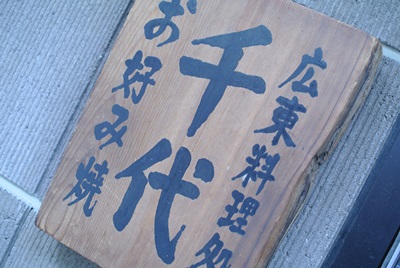 広東料理処
千代
お好み焼